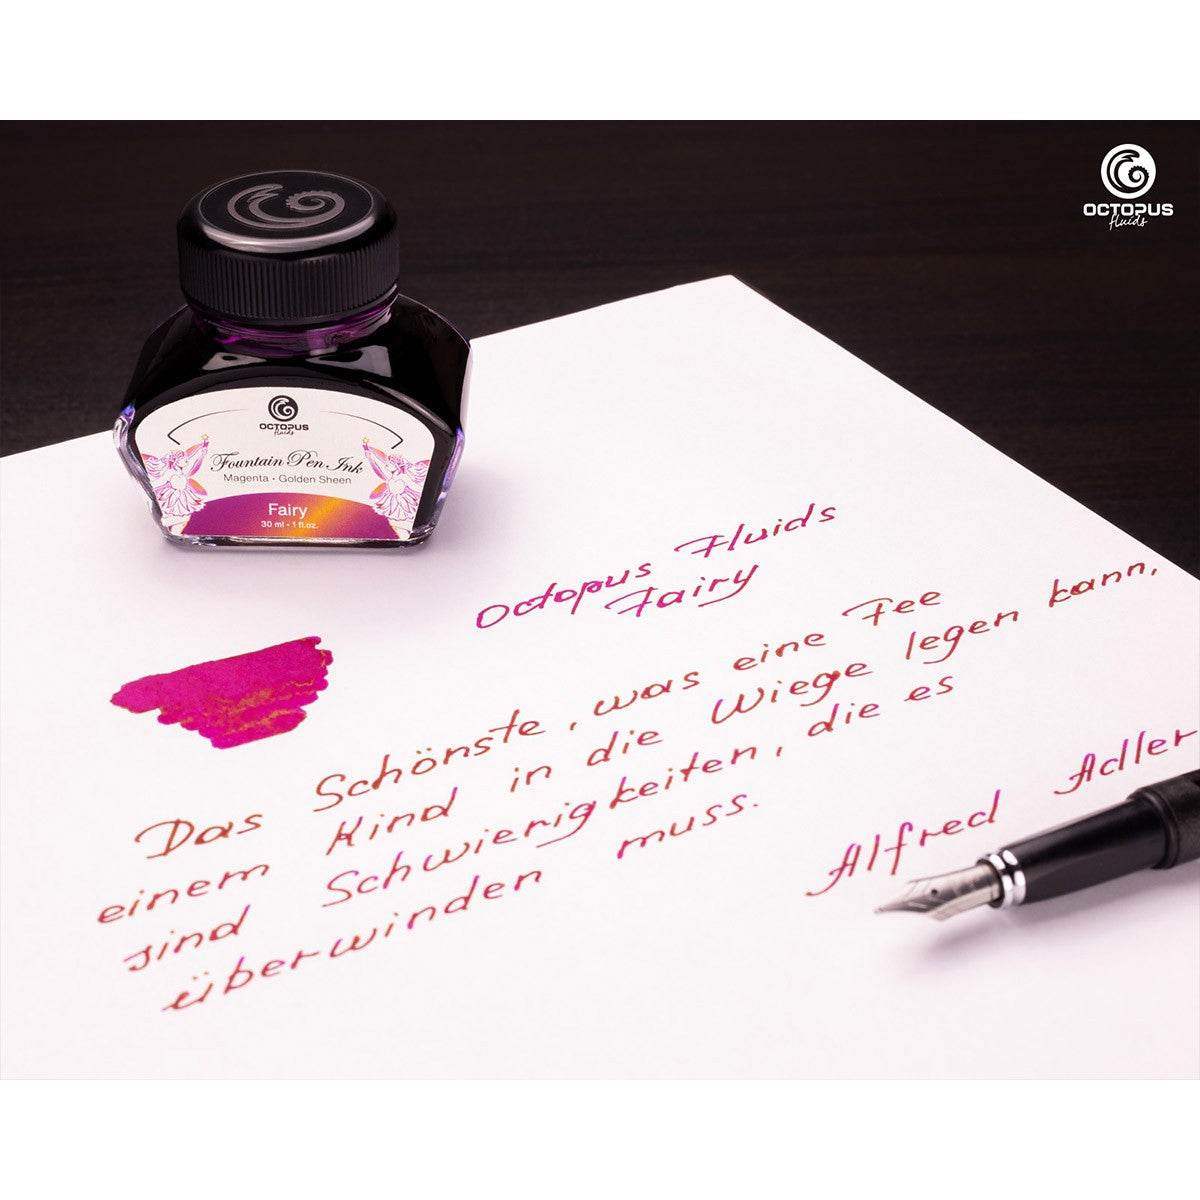 OCTOPUS
fluids
OCTOPUS
fluids
Fountain Pen Ink
Magenta • Golden Sheen
Fairy
30 ml - 1 fl.oz.
Octopus Fluids
Fairy
Das Schönste, was eine Fee
einem Kind in die Wiege legen kann,
sind Schwierigkeiten, die es
überwinden muss.
Alfred Adler